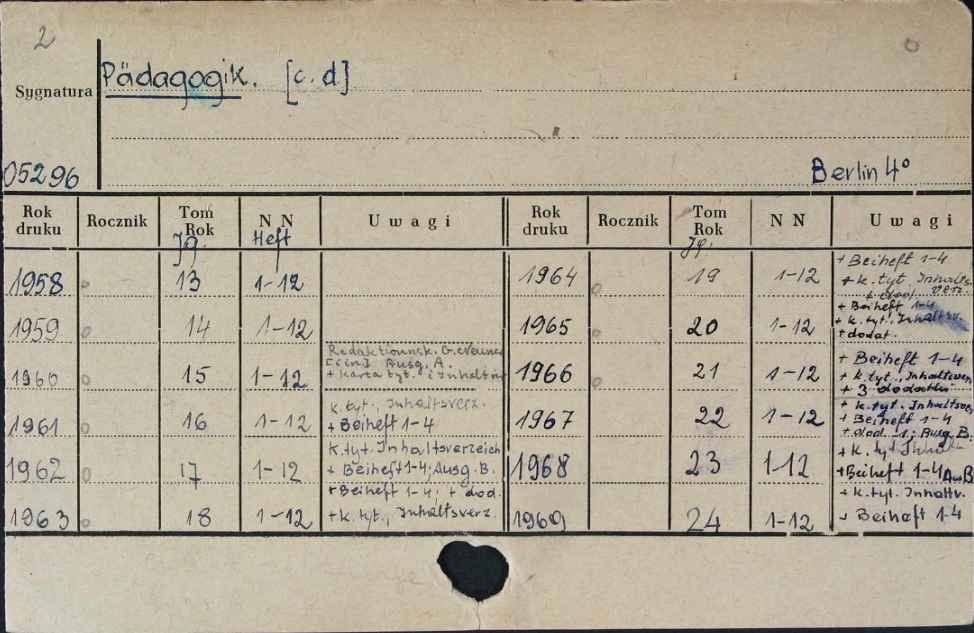 2
Pädagogik. [c. d]
Sygnatura
05296
Berlin 4º
Rok druku Rocznik Tom Rok Jg. N N Heft U w a g i Rok druku Rocznik Tom Rok Jg. N N U w a g i
1958 13 1-12
1959 14 1-12
1960 15 1-12 Redaktionnsk. G. Ausg. A.
+ Karta tyt. i
1961 16 1-12 k. tyt., Inhaltsverz.
+ Beiheft 1-4
1962 17 1-12 k. tyt. Inhaltsverzeich
+ Beiheft 1-4; Ausg. B.
1963 18 1-12 + Beiheft 1-4; + dod.
+ k. tyt., Inhaltsverz.
1964 19 1-12 + Beiheft 1-4
+ k. tyt, Inhalts
verz.
1965 20 1-12 + Beiheft 1-4
+ k. tyt. Inhaltsv.
+ dodat.
1966 21 1-12 + Beiheft 1-4
+ k. tyt., Inhaltsver
+ 3 dodatki
1967 22 1-12 + k. tyt. Inhaltsver
+ Beiheft 1-4
+ dod. 1; Ausg. B.
1968 23 1-12 + k. tyt
+ Beiheft 1-4 Aus B
1969 24 1-12 + k. tyt. Inhaltv.
+ Beiheft 1-4